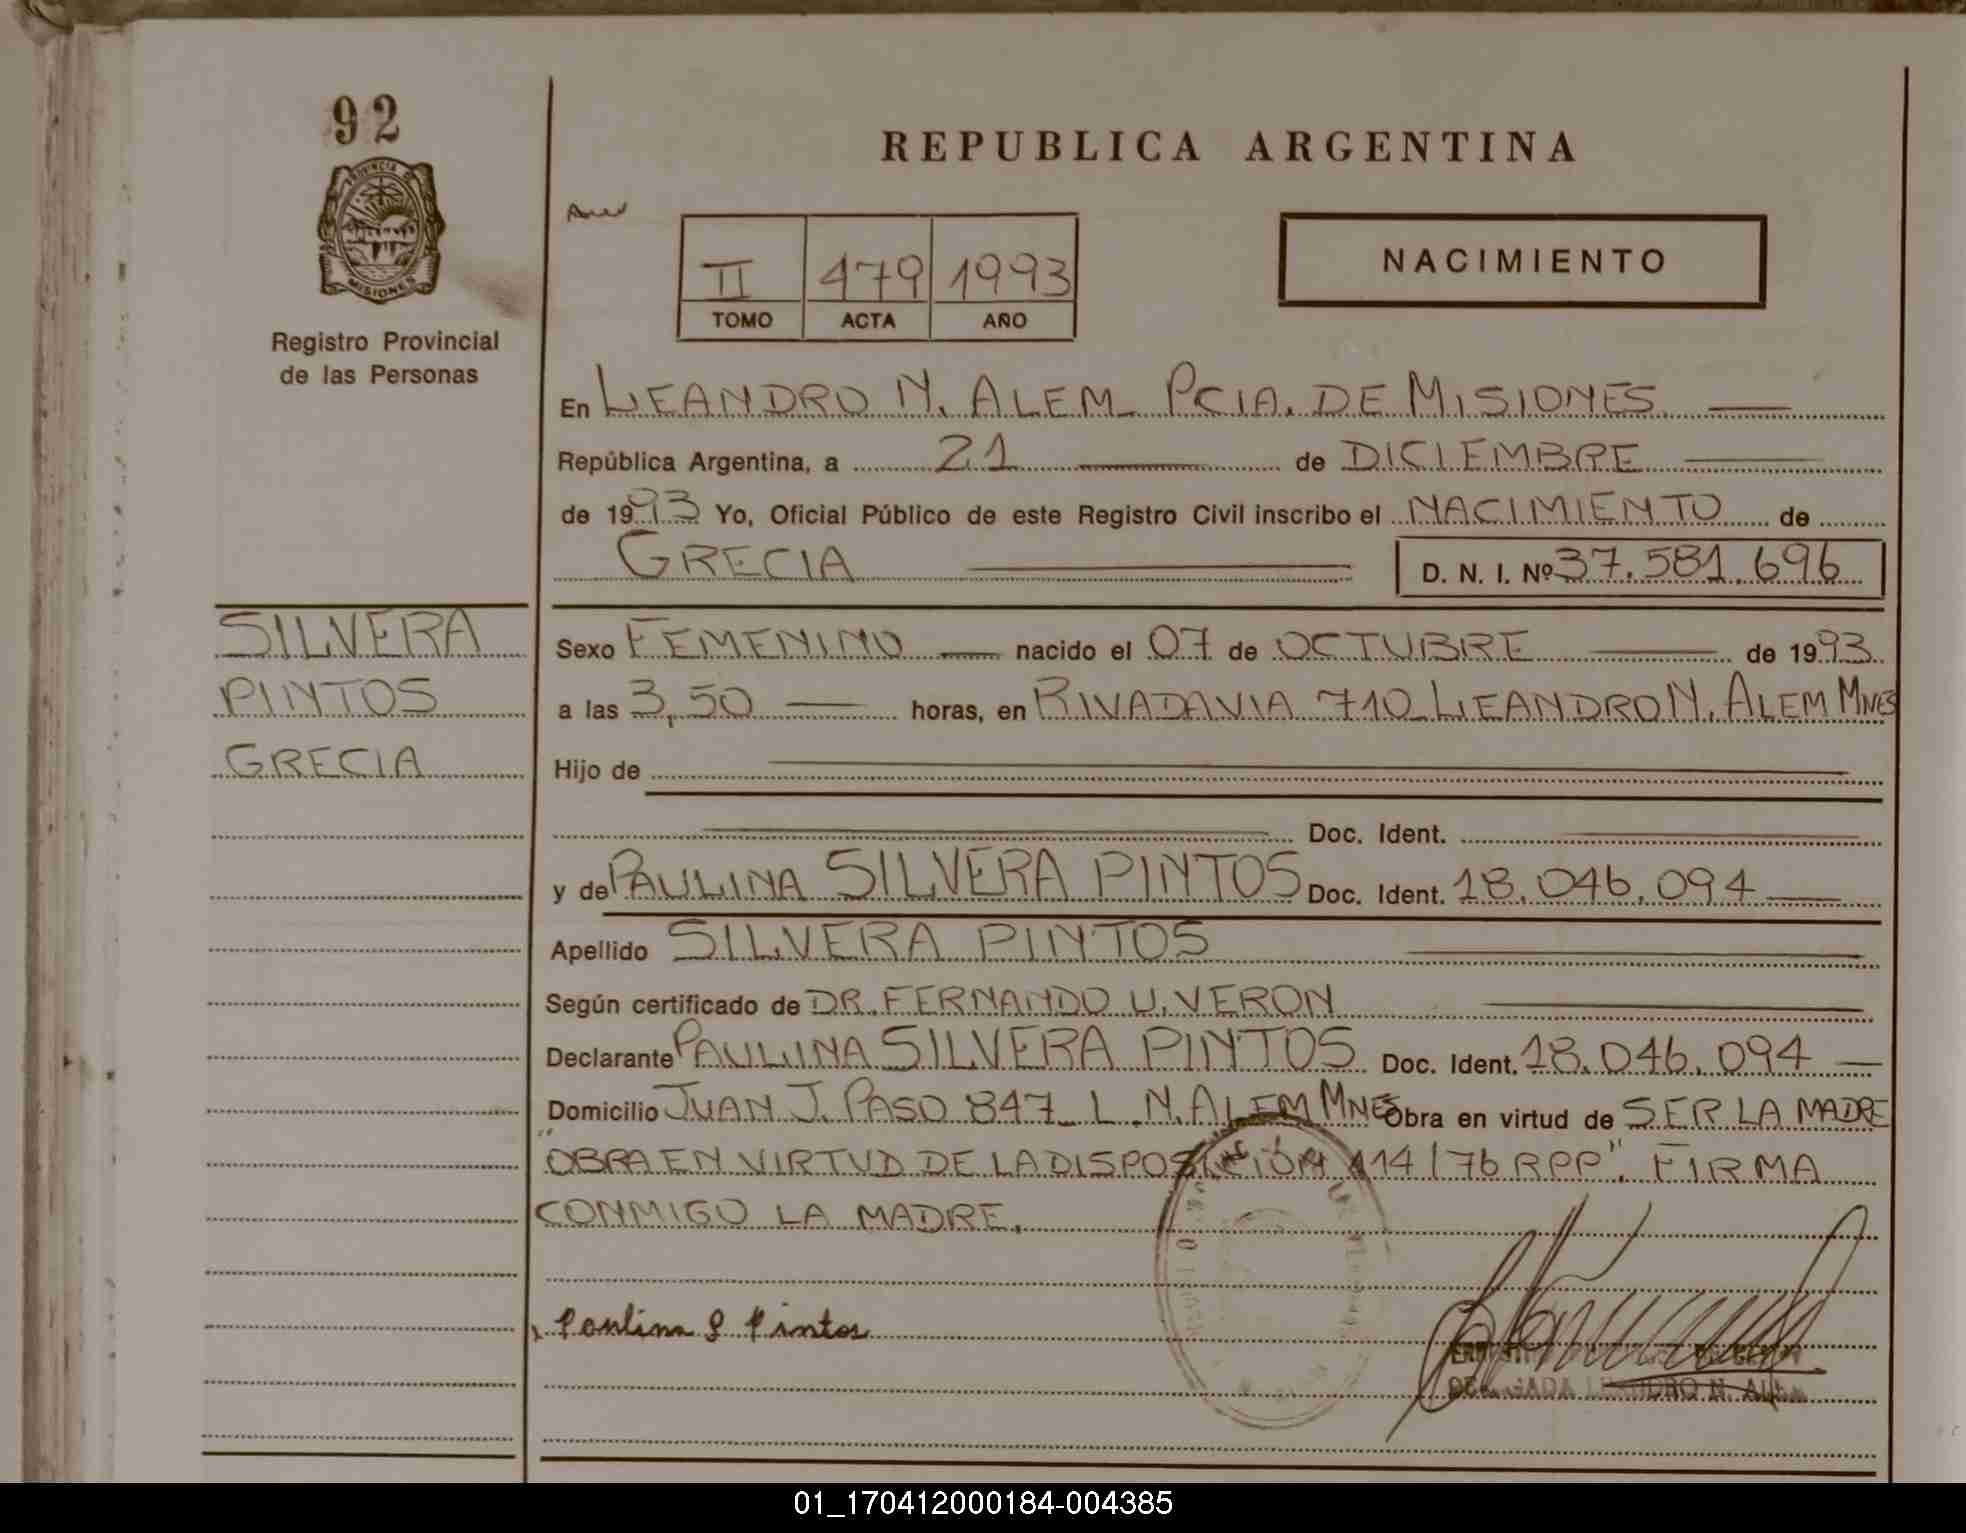 92
PROVINCIA DE
MISIONES
Registro Provincial
de las Personas
REPUBLICA ARGENTINA
II 479 1993
TOMO ACTA AÑO
NACIMIENTO
En LEANDRO N. ALEM PCIA. DE MISIONES
República Argentina, a 21 de DICIEMBRE
de 1993 Yo, Oficial Público de este Registro Civil inscribo el NACIMIENTO de
GRECIA D. N. I. Nº 37.581.696
SILVERA
PINTOS
GRECIA
Sexo FEMENINO nacido el 07 de OCTUBRE de 1993
a las 3,50 horas, en RIVADAVIA 710 LEANDRO N. ALEM MNES
Hijo de
Doc. Ident.
y de PAULINA SILVERA PINTOS Doc. Ident. 18.046.094
Apellido SILVERA PINTOS
Según certificado de DR. FERNANDO U. VERON
Declarante PAULINA SILVERA PINTOS Doc. Ident. 18.046.094
Domicilio JUAN J. PASO 847 L. N. ALEM MNES Obra en virtud de SER LA MADRE
"OBRA EN VIRTUD DE LA DISPOSICIÓN 114/76 RPP". FIRMA
CONMIGO LA MADRE.
Paulina S Pintos
LEANDRO N. ALEM
01_170412000184-004385